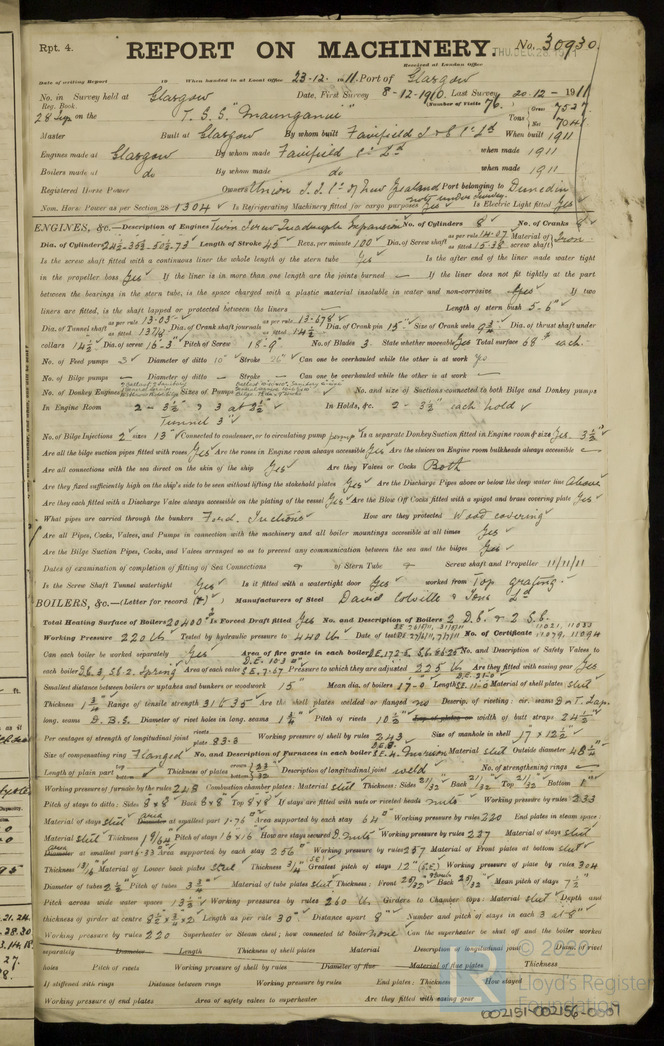 Rpt. 4.
REPORT ON MACHINERY.
No. 30930
THU. DEC. 28. 1911
Received at London Office
Date of writing Report 19 When handed in at Local Office 23-12- 1911. Port of Glasgow
No. in Survey held at Glasgow Date, First Survey 8-12-1910 Last Survey 20-12-1911
Reg. Book.
(Number of Visits 76.)
28 Sup on the T. S. S. "Maunganui" Tons Gross 7527 Net 7041
Master Built at Glasgow By whom built Fairfield S & E Co Ld When built 1911
Engines made at Glasgow By whom made Fairfield Co Ld when made 1911
Boilers made at do By whom made do when made 1911
Registered Horse Power Owners Union S. S. Co of New Zealand Port belonging to Dunedin
Nom. Horse Power as per Section 28 1304 Is Refrigerating Machinery fitted for cargo purposes Yes Is Electric Light fitted Yes
ENGINES, &c.—Description of Engines Twin Screw Quadruple Expansion No. of Cylinders 8 No. of Cranks 8
Dia. of Cylinders Length of Stroke 45" Revs. per minute 100 Dia. of Screw shaft as per rule 14.07 as fitted 15.38 Material of screw shaft Iron
Is the screw shaft fitted with a continuous liner the whole length of the stern tube Yes Is the after end of the liner made water tight
in the propeller boss Yes If the liner is in more than one length are the joints burned — If the liner does not fit tightly at the part
between the bearings in the stern tube, is the space charged with a plastic material insoluble in water and non-corrosive Yes If two
liners are fitted, is the shaft lapped or protected between the liners — Length of stern bush 5-6"
Dia. of Tunnel shaft as per rule 13.03 as fitted 13 1/4 Dia. of Crank shaft journals as per rule 13.678 as fitted 14 1/2 Dia. of Crank pin 15" Size of Crank webs 9 3/4 Dia. of thrust shaft under
collars 14 1/2 Dia. of screw 16-3" Pitch of Screw 18-9" No. of Blades 3 State whether moveable Yes Total surface 68 each
No. of Feed pumps 3 Diameter of ditto 10" Stroke Can one be overhauled while the other is at work Yes
No. of Bilge pumps — Diameter of ditto — Stroke — Can one be overhauled while the other is at work —
No. of Donkey Engines Sizes of Pumps No. and size of Suctions connected to both Bilge and Donkey pumps
In Engine Room 2 - 3 1/2" & 3 at 3 1/2" In Holds, &c. 2 - 3 1/2" each hold
Tunnel 3"
No. of Bilge Injections 2 sizes 13" Connected to condenser, or to circulating pump pump Is a separate Donkey Suction fitted in Engine room & size Yes 3 1/2"
Are all the bilge suction pipes fitted with roses Yes Are the roses in Engine room always accessible Yes Are the sluices on Engine room bulkheads always accessible —
Are all connections with the sea direct on the skin of the ship Yes Are they Valves or Cocks Both
Are they fixed sufficiently high on the ship's side to be seen without lifting the stokehold plates Yes Are the Discharge Pipes above or below the deep water line Above
Are they each fitted with a Discharge Valve always accessible on the plating of the vessel Yes Are the Blow Off Cocks fitted with a spigot and brass covering plate Yes
What pipes are carried through the bunkers Ford. Suctions How are they protected Wood covering
Are all Pipes, Cocks, Valves, and Pumps in connection with the machinery and all boiler mountings accessible at all times Yes
Are the Bilge Suction Pipes, Cocks, and Valves arranged so as to prevent any communication between the sea and the bilges Yes
Dates of examination of completion of fitting of Sea Connections of Stern Tube Screw shaft and Propeller 11/11/11
Is the Screw Shaft Tunnel watertight Yes Is it fitted with a watertight door Yes worked from Top grating
BOILERS, &c.—(Letter for record (S)) Manufacturers of Steel David Colville & Sons Ld
Total Heating Surface of Boilers 20400 Is Forced Draft fitted Yes No. and Description of Boilers 2 D.E. & 2 S.E.
Working Pressure 220 lb Tested by hydraulic pressure to 440 lb Date of test No. of Certificate 11021, 11083 11079, 11094
Can each boiler be worked separately Yes Area of fire grate in each boiler No. and Description of Safety Valves to
each boiler D.E. 3, S.E. 2. Spring Area of each valve D.E. 10.30 S.E. 7.67 Pressure to which they are adjusted 225 lb Are they fitted with easing gear Yes
Smallest distance between boilers or uptakes and bunkers or woodwork 15" Mean dia. of boilers 17-0 Length D.E. 21-0 S.E. 11-0 Material of shell plates steel
Thickness 1 3/4 Range of tensile strength 31 to 35 Are the shell plates welded or flanged no Descrip. of riveting: cir. seams D & T. Lap.
long. seams D. B. S. Diameter of rivet holes in long. seams Pitch of rivets 10 1/2 Lap of plates or width of butt straps 24 1/2
Per centages of strength of longitudinal joint rivets plate 83.3 Working pressure of shell by rules 243 Size of manhole in shell 17 x 12 1/2
Size of compensating ring Flanged No. and Description of Furnaces in each boiler D.E. 8 S.E. 4. Morison Material steel Outside diameter 48 1/2"
Length of plain part top bottom Thickness of plates crown bottom Description of longitudinal joint weld No. of strengthening rings —
Working pressure of furnace by the rules 248 Combustion chamber plates: Material steel Thickness: Sides 21/32 Back 21/32 Top 21/32 Bottom 1"
Pitch of stays to ditto: Sides 8 x 8 Back 8 x 8 Top 8 x 8 If stays are fitted with nuts or riveted heads nuts Working pressure by rules 233
Material of stays steel area at smallest part 1.76 Area supported by each stay 64 Working pressure by rules 220 End plates in steam space:
Material steel Thickness 1 9/64 Pitch of stays 16 x 16 How are stays secured D. nuts Working pressure by rules 237 Material of stays steel
area at smallest part 6.33 Area supported by each stay 256 Working pressure by rules 257 Material of Front plates at bottom steel
Thickness 13/16 Material of Lower back plates steel Thickness 3/4 Greatest pitch of stays 12" (S.E.) Working pressure of plate by rules 304
Diameter of tubes 2 1/2 Pitch of tubes 3 3/4 Material of tube plates steel Thickness: Front 25/32 Back 25/32 Mean pitch of stays 7 1/2
Pitch across wide water spaces 13 1/2 Working pressures by rules 260 lb Girders to Chamber tops: Material steel Depth and
thickness of girder at centre 8 1/2 x 3/4 x 2 Length as per rule 30" Distance apart 8" Number and pitch of stays in each 3 at 8"
Working pressure by rules 220 Superheater or Steam chest; how connected to boiler none Can the superheater be shut off and the boiler worked
separately Diameter Length Thickness of shell plates Material Description of longitudinal joint Diam. of rivet
holes Pitch of rivets Working pressure of shell by rules Diameter of flue Material of flue plates Thickness
If stiffened with rings Distance between rings Working pressure by rules End plates: Thickness How stayed
Working pressure of end plates Area of safety valves to superheater Are they fitted with easing gear
© 2020
Lloyd's Register
Foundation
002151-002156-0001